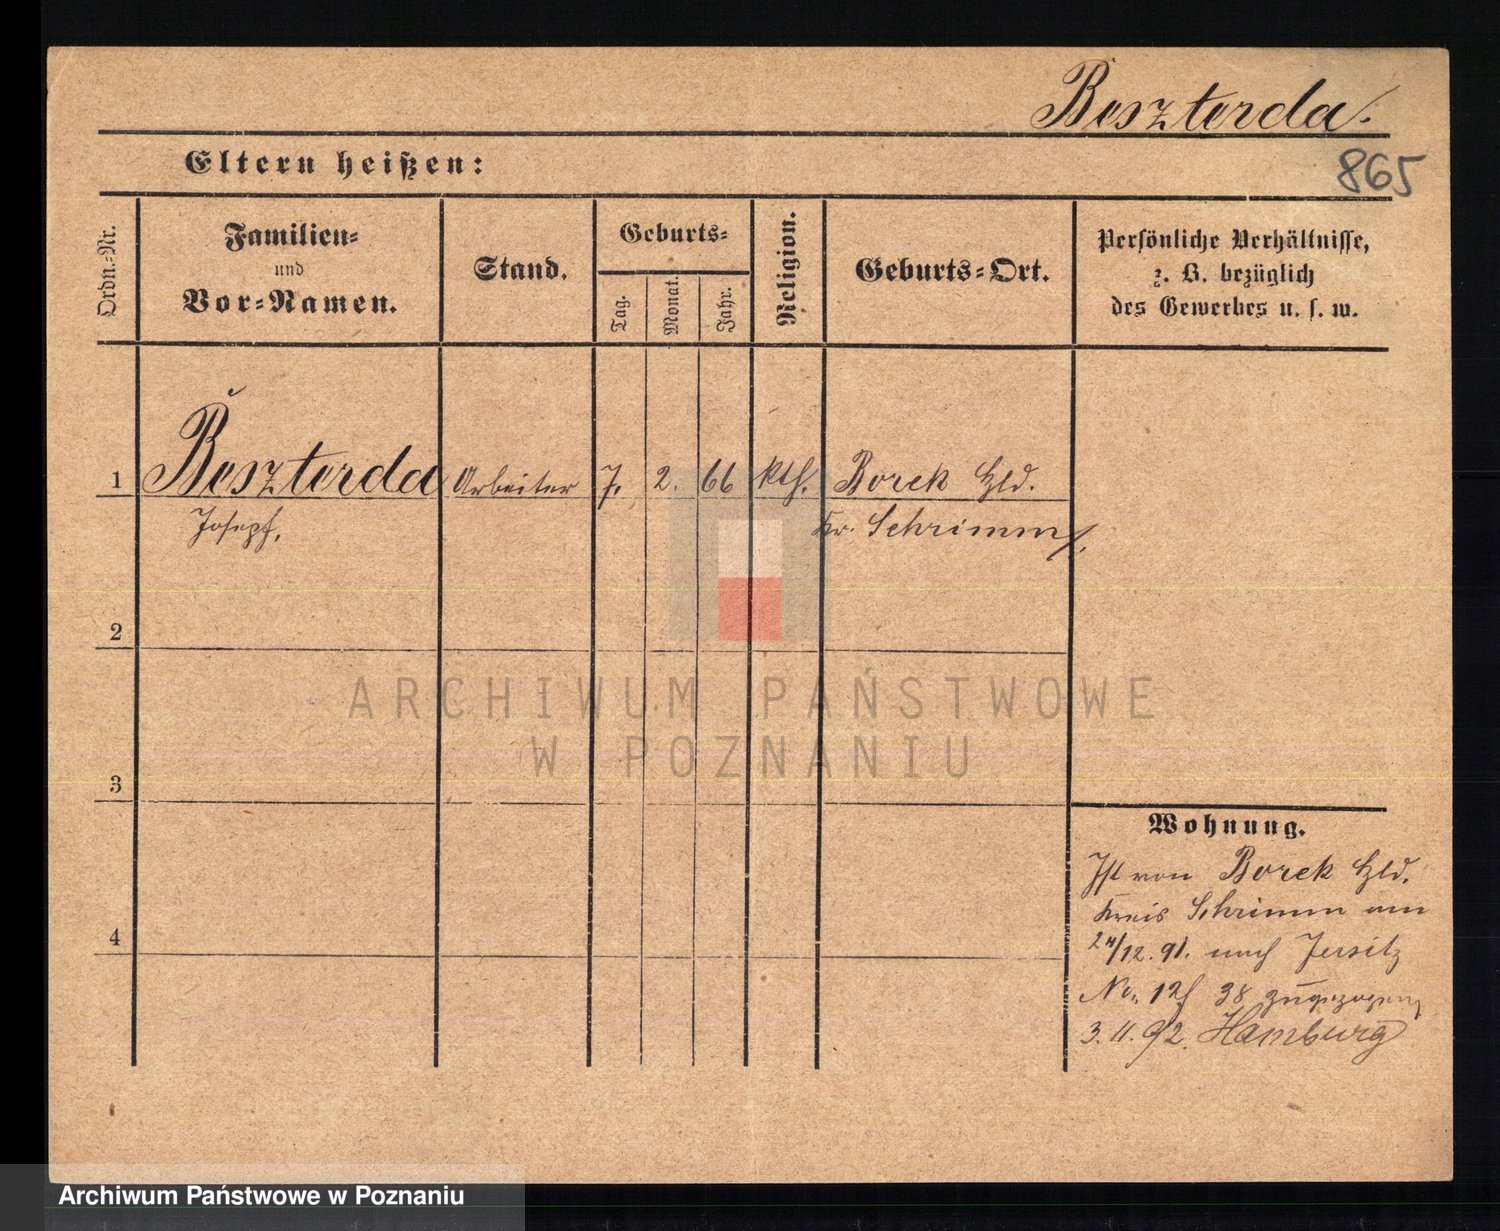 Beszterda.
Eltern heißen:
865
Ordn.-Nr.
Familien-
und
Vor-Namen.
Stand.
Geburts-
Tag.
Monat.
Jahr.
Religion.
Geburts-Ort.
Persönliche Verhältnisse,
z. B. bezüglich
des Gewerbes u. s. w.
1
Beszterda
Arbeiter
7.
2.
66
kth.
Borek Hld.
Josef.
Kr. Schrimm
2
3
4
ARCHIWUM PAŃSTWOWE
W POZNANIU
Wohnung.
Ist von Borek Hld.
Kreis Schrimm am
/12.91. nach Jersitz
No. 38 zugezogen
3.11.92. Hamburg
Archiwum Państwowe w Poznaniu